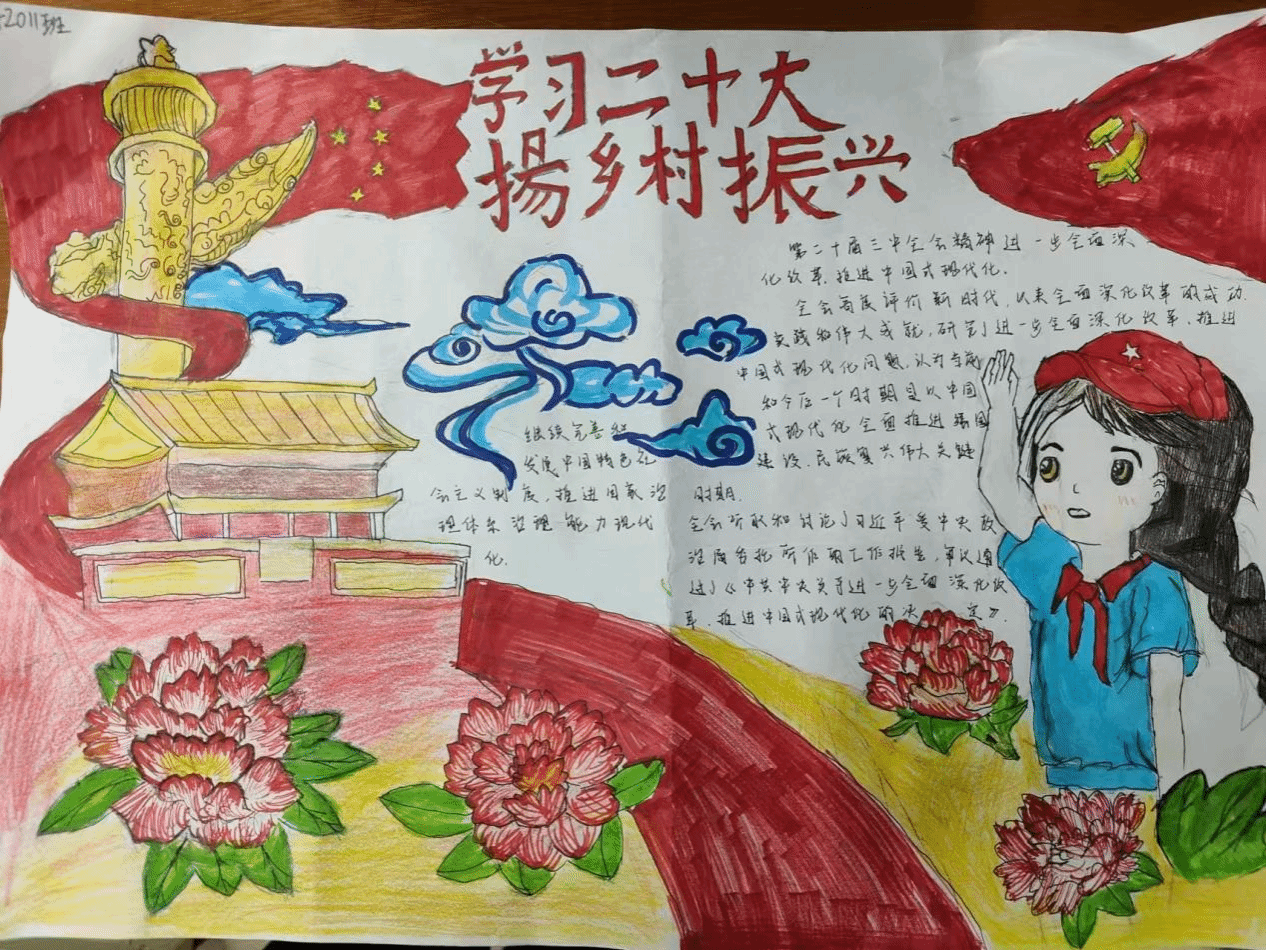 2011班
学习二十大
揚乡村振兴
第二十届三中全会精神进一步全面深
化改革,推进中国式现代化.
全会高度评价新时代,以来全面深化改革的成功
实践和伟大成就,研究了进一步全面深化改革、推进
中国式现代化问题,认为当前
和今后一个时期是以中国
式现代化全面推进强国
建设、民族复兴伟大关键
时期.
全会听取和讨论了习近平受中央政
治局委托所作的工作报告,审议通
过了《中共中央关于进一步全面深化改
革、推进中国式现代化的决定》.
继续完善和
发展中国特色社
会主义制度,推进国家治
理体系治理能力现代
化.